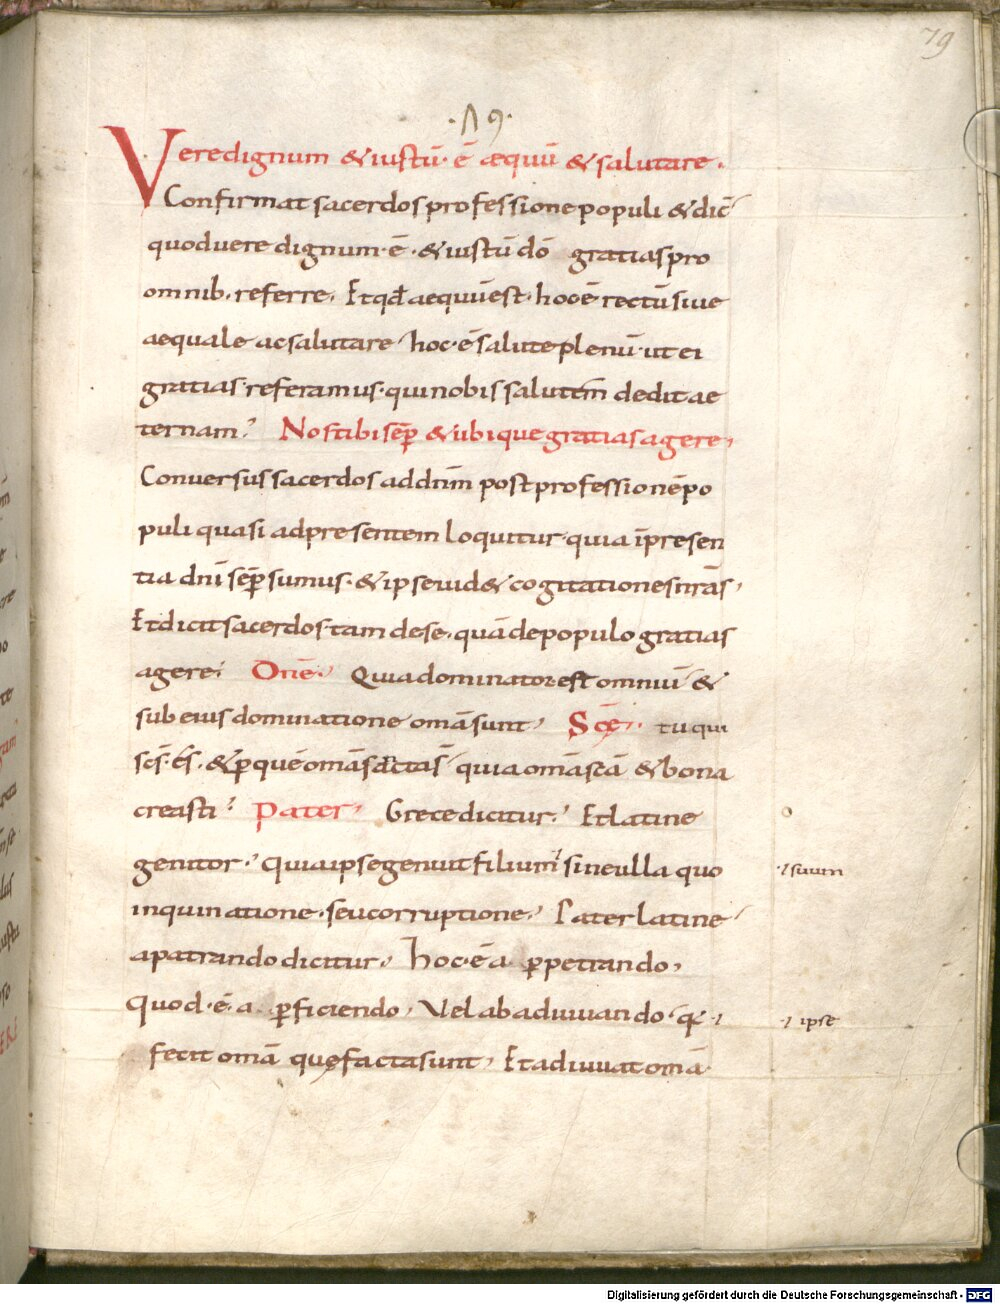 79
·Λ9·
Vere dignum & iustū· ē æquū & salutare·
Confirmat sacerdos professione populi & dic̄
quod uere dignum· ē· & iustū dō gratias pro
omnib· referre· Et qđ aequū est· hoc ē rectū siue
aequale ac salutare hoc· ē salute plenū· ut ei
gratias· referamus· qui nobis salutem̄ dedit ae
ternam· Nos tibi sēp & ubique gratias agere,
Conuersus sacerdos ad dnm̄ post professionē po
puli quasi ad presentem loquitur· quia ī presen
tia dnī sēp sumus· & ipse uid& cogitationes nrās,
Et dicit sacerdos· tam de se· quā de populo gratias
agere· Omē· Quia dominator est omniū &
sub eius dominatione omā sunt, Scē· tu qui
scs̄· ēs· & p̄ quē omā scā ctās quia omā scā & bona
creasti· Pater, Grece dicitur· Et latine
genitor· quia ipse genuit filium sine ulla quo
·/ suum
inquinatione· seu corruptione· Pater latine
a patrando dicitur· hoc· ē a perpetrando,
quod· ē· a perficiendo, Vel ab adiuuando· q·
·/ ipse
fecit omā quę facta sunt, Et adiuuat omā·
Digitalisierung gefördert durch die Deutsche Forschungsgemeinschaft - DFG